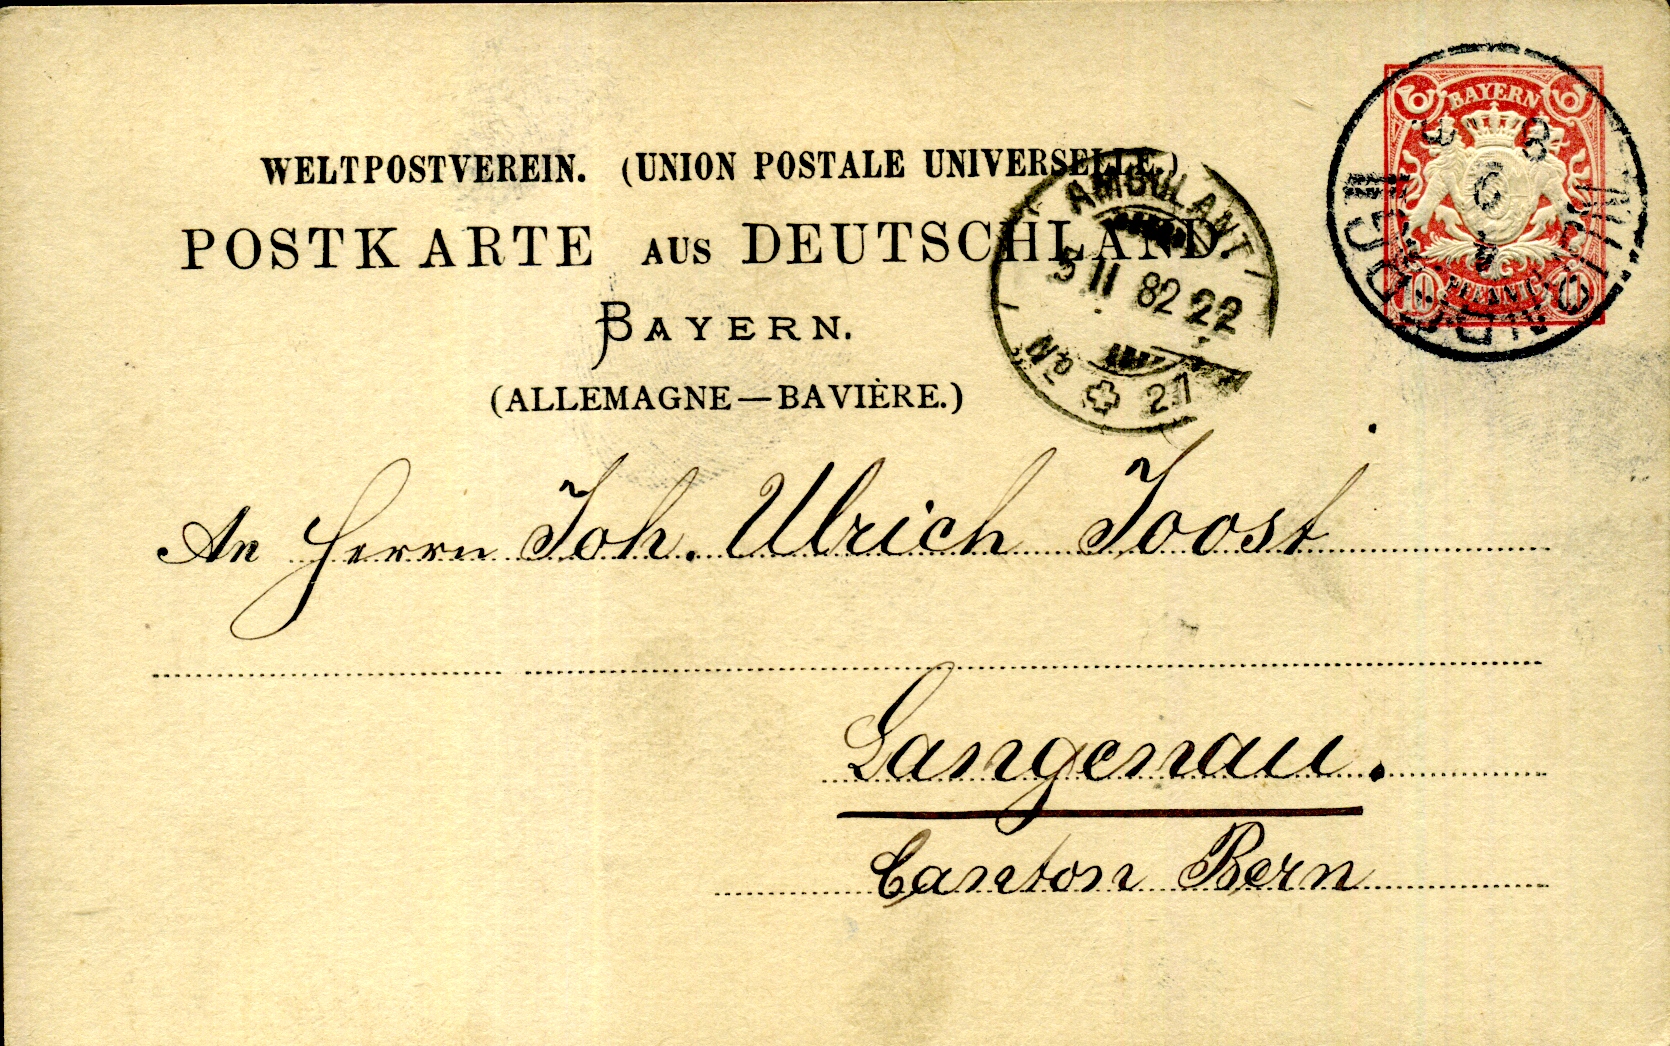 WELTPOSTVEREIN. (UNION POSTALE UNIVERSELLE.)
POSTKARTE AUS DEUTSCHLAND.
BAYERN.
(ALLEMAGNE—BAVIÈRE.)
BAYERN
10 PFENNIG 10
AMBULANT
5 II 82 22
No 27
An Herrn Joh. Ulrich Joost
Langenau.
Canton Bern